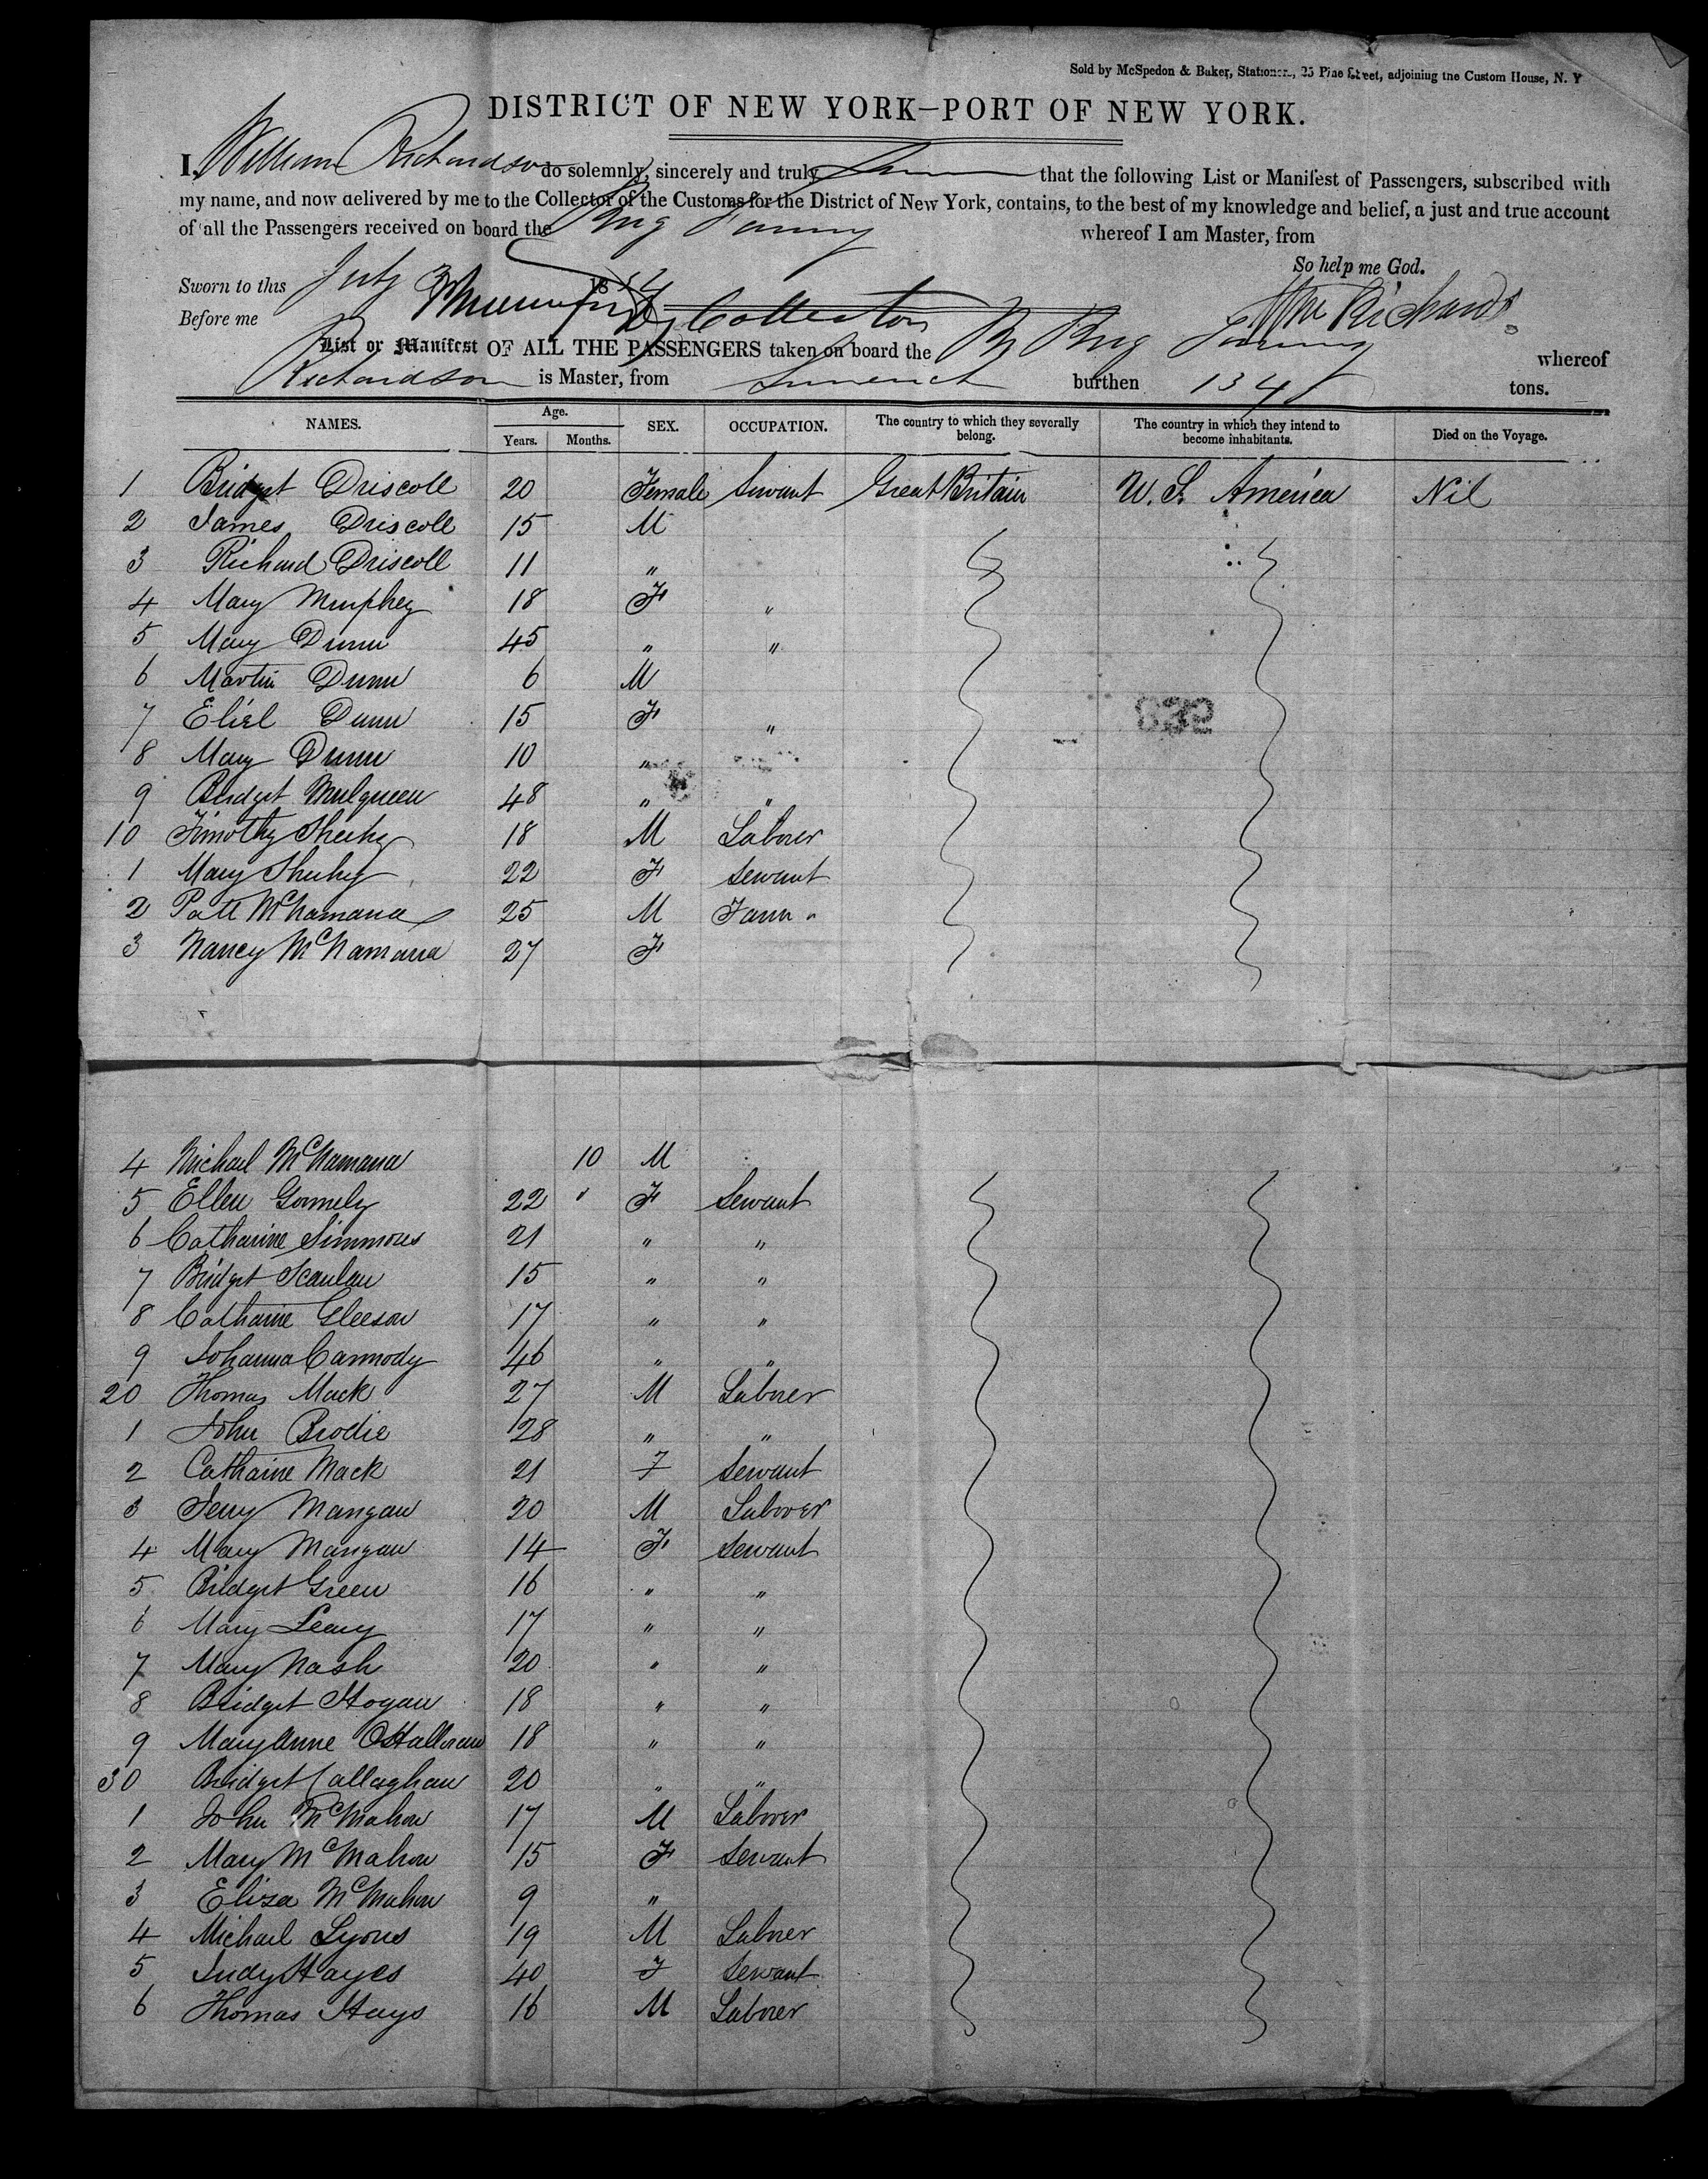 Sold by McSpedon & Baker, Stationers, 25 Pine Street, adjoining the Custom House, N. Y
DISTRICT OF NEW YORK—PORT OF NEW YORK.
I, William Richardson do solemnly, sincerely and truly that the following List or Manifest of Passengers, subscribed with
my name, and now delivered by me to the Collector of the Customs for the District of New York, contains, to the best of my knowledge and belief, a just and true account
of all the Passengers received on board the Brig Fanny whereof I am Master, from
So help me God.
Sworn to this July 18
Before me Dy Collector Wm Richards
List or Manifest OF ALL THE PASSENGERS taken on board the Br Brig Fanny whereof
Richardson is Master, from Limerick burthen 134 tons.
NAMES. Age. Years. Months. SEX. OCCUPATION. The country to which they severally belong. The country in which they intend to become inhabitants. Died on the Voyage.
1 Bridget Driscoll 20 Female Servant Great Britain U. S. America Nil
2 James Driscoll 15 M
3 Richard Driscoll 11 "
4 Mary Murphey 18 F "
5 Mary Dunn 45 " "
6 Martin Dunn 6 M
7 Dunn 15 F "
8 Mary Dunn 10 "
9 Bridget Mulqueen 48 " "
10 Timothy Sheehy 18 M Laborer
1 Mary Sheehy 22 F Servant
2 Patt McNamara 25 M
3 Nancy McNamara 27 F
632
4 Michael McNamara 10 M
5 Ellen Gormely 22 " F Servant
6 Catharine Simmons 21 " "
7 Bridget Scanlan 15 " "
8 Catharine Gleeson 17 " "
9 Johanna Carmody 46 " "
20 Thomas Mack 27 M Laborer
1 John Brodie 28 " "
2 Catharine Mack 21 F Servant
3 Jerry Mangan 20 M Laborer
4 Mary Mangan 14 F Servant
5 Bridget Green 16 " "
6 Mary Leary 17 " "
7 Mary Nash 20 " "
8 Bridget Hogan 18 " "
9 Mary Anne OHalloran 18 " "
30 Bridget Callaghan 20 " "
1 John McMahon 17 M Laborer
2 Mary McMahon 15 F Servant
3 Eliza McMahon 9 "
4 Michael Lyons 19 M Laborer
5 Judy Hayes 40 F Servant
6 Thomas Hays 16 M Laborer